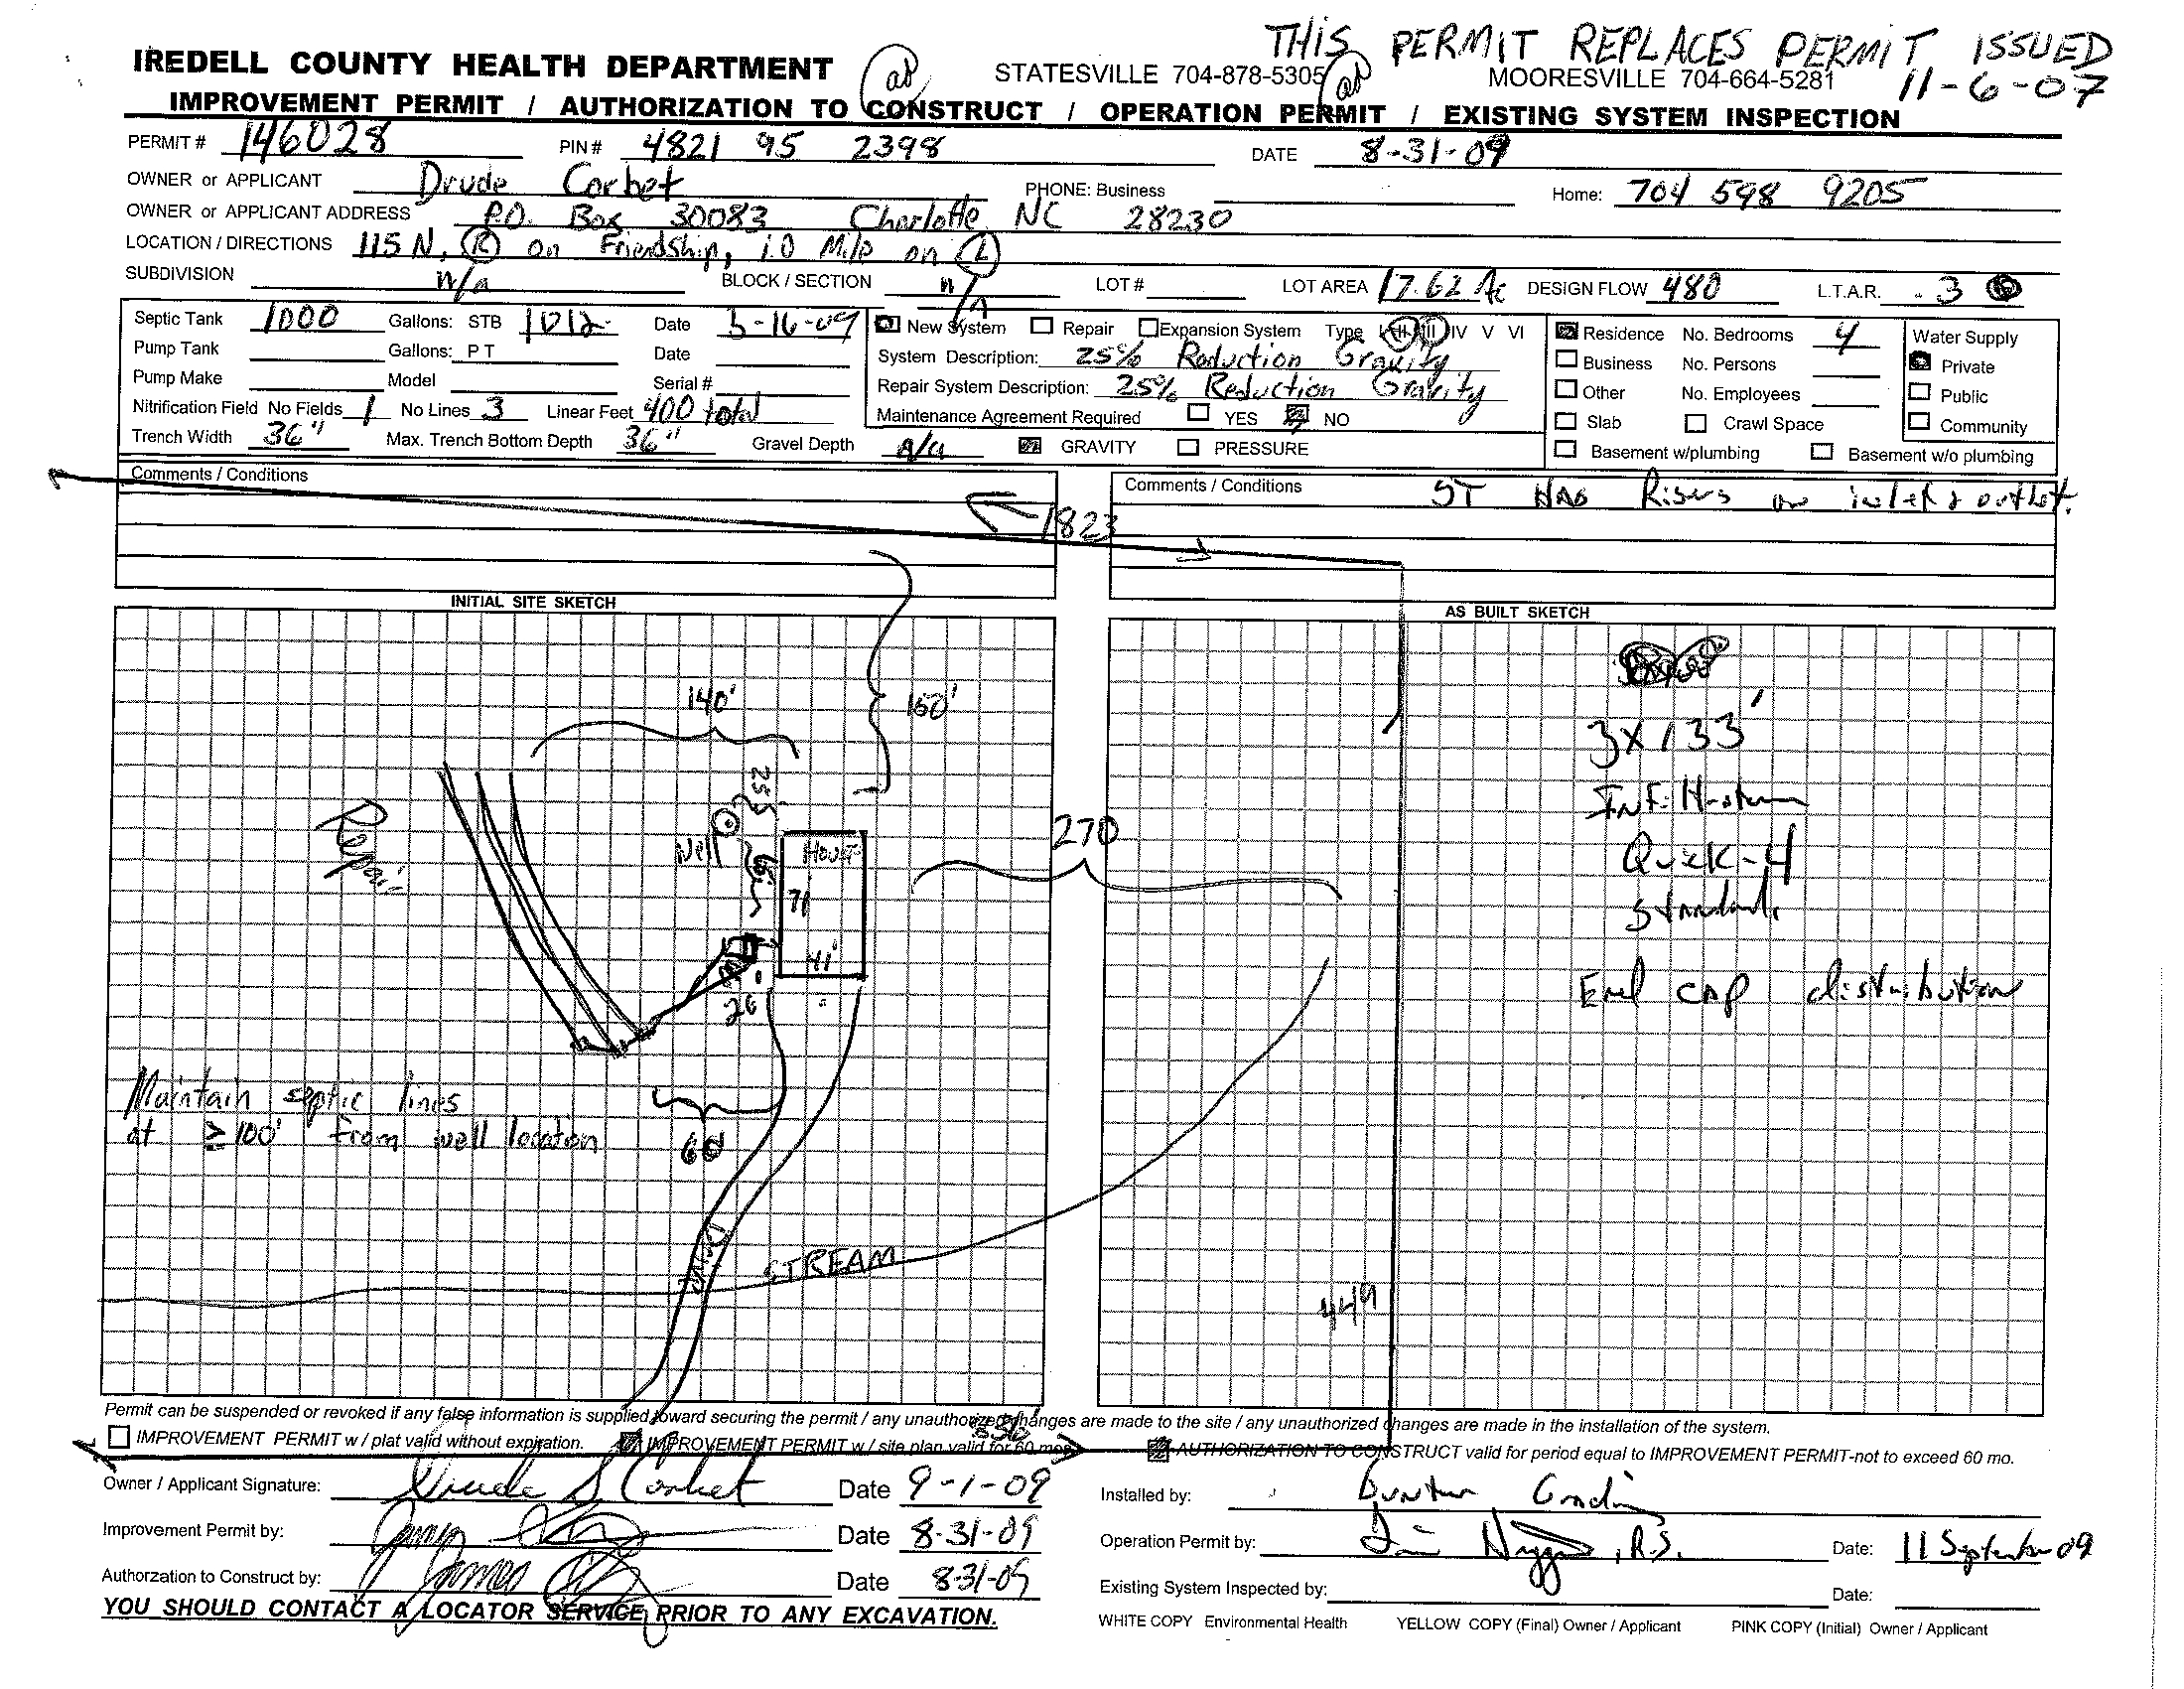 THIS PERMIT REPLACES PERMIT ISSUED
11-6-07
IREDELL COUNTY HEALTH DEPARTMENT STATESVILLE 704-878-5305 MOORESVILLE 704-664-5281
IMPROVEMENT PERMIT / AUTHORIZATION TO CONSTRUCT / OPERATION PERMIT / EXISTING SYSTEM INSPECTION
PERMIT # 146028 PIN # 4821 95 2398 DATE 8-31-09
OWNER or APPLICANT Drude Corbet PHONE: Business Home: 704 598 9205
OWNER or APPLICANT ADDRESS P.O. Box 30083 Charlotte NC 28230
LOCATION / DIRECTIONS 115 N, (R) on Friendship, 1.0 Mile on (L)
SUBDIVISION n/a BLOCK / SECTION n/A LOT # LOT AREA 17.62 Ac DESIGN FLOW 480 L.T.A.R. .3
Septic Tank 1000 Gallons: STB 1012 Date 5-16-09 New System Repair Expansion System Type I II III IV V VI Residence No. Bedrooms 4 Water Supply
Pump Tank Gallons: P T Date System Description: 25% Reduction Gravity Business No. Persons Private
Pump Make Model Serial # Repair System Description: 25% Reduction Gravity Other No. Employees Public
Nitrification Field No Fields 1 No Lines 3 Linear Feet 400 total Maintenance Agreement Required YES NO Slab Crawl Space Community
Trench Width 36" Max. Trench Bottom Depth 36" Gravel Depth n/a GRAVITY PRESSURE Basement w/plumbing Basement w/o plumbing
Comments / Conditions
Comments / Conditions ST HAS Risers on inlet & outlet.
1823
INITIAL SITE SKETCH
AS BUILT SKETCH
140'
160'
25'
Well
House
71
41'
26'
Repair
270
3x133'
Infiltrator
Quick-4
Standard.
End cap distribution
Maintain septic lines
at ≥100' from well location
60'
Drive
STREAM
449
Permit can be suspended or revoked if any false information is supplied toward securing the permit / any unauthorized changes are made to the site / any unauthorized changes are made in the installation of the system.
IMPROVEMENT PERMIT w / plat valid without expiration. IMPROVEMENT PERMIT w / site plan valid for 60 mo. AUTHORIZATION TO CONSTRUCT valid for period equal to IMPROVEMENT PERMIT-not to exceed 60 mo.
Owner / Applicant Signature: Drude S Corbet Date 9-1-09 Installed by:
Improvement Permit by: James Date 8-31-09 Operation Permit by: , R.S. Date: 11 September 09
Authorzation to Construct by: James Date 8-31-09 Existing System Inspected by: Date:
YOU SHOULD CONTACT A LOCATOR SERVICE PRIOR TO ANY EXCAVATION.
WHITE COPY Environmental Health YELLOW COPY (Final) Owner / Applicant PINK COPY (Initial) Owner / Applicant